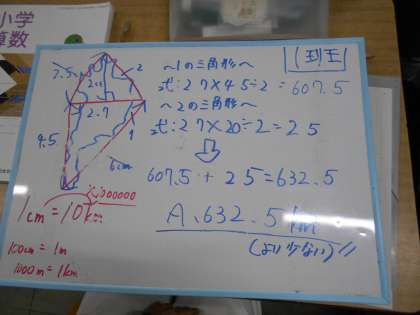 小学
算数
1班王
～1の三角形～
式:27×45÷2=607.5
～2の三角形～
式:27×20÷2=25
607.5+25=632.5
A.632.5km
(より少ない)
2.5
2
2.0
2.7
4.5
1
6cm
1cm=10km
100cm=1m
1000m=1km